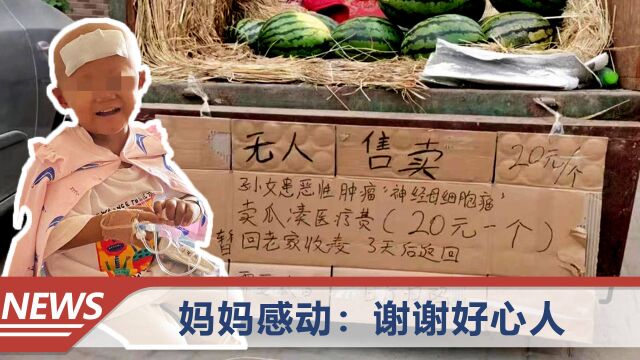 无人 售卖 20元/个
孙女患恶性肿瘤"神经母细胞瘤"
卖瓜凑医疗费(20元一个)
暂回老家收麦 3天后返回
NEWS 妈妈感动：谢谢好心人